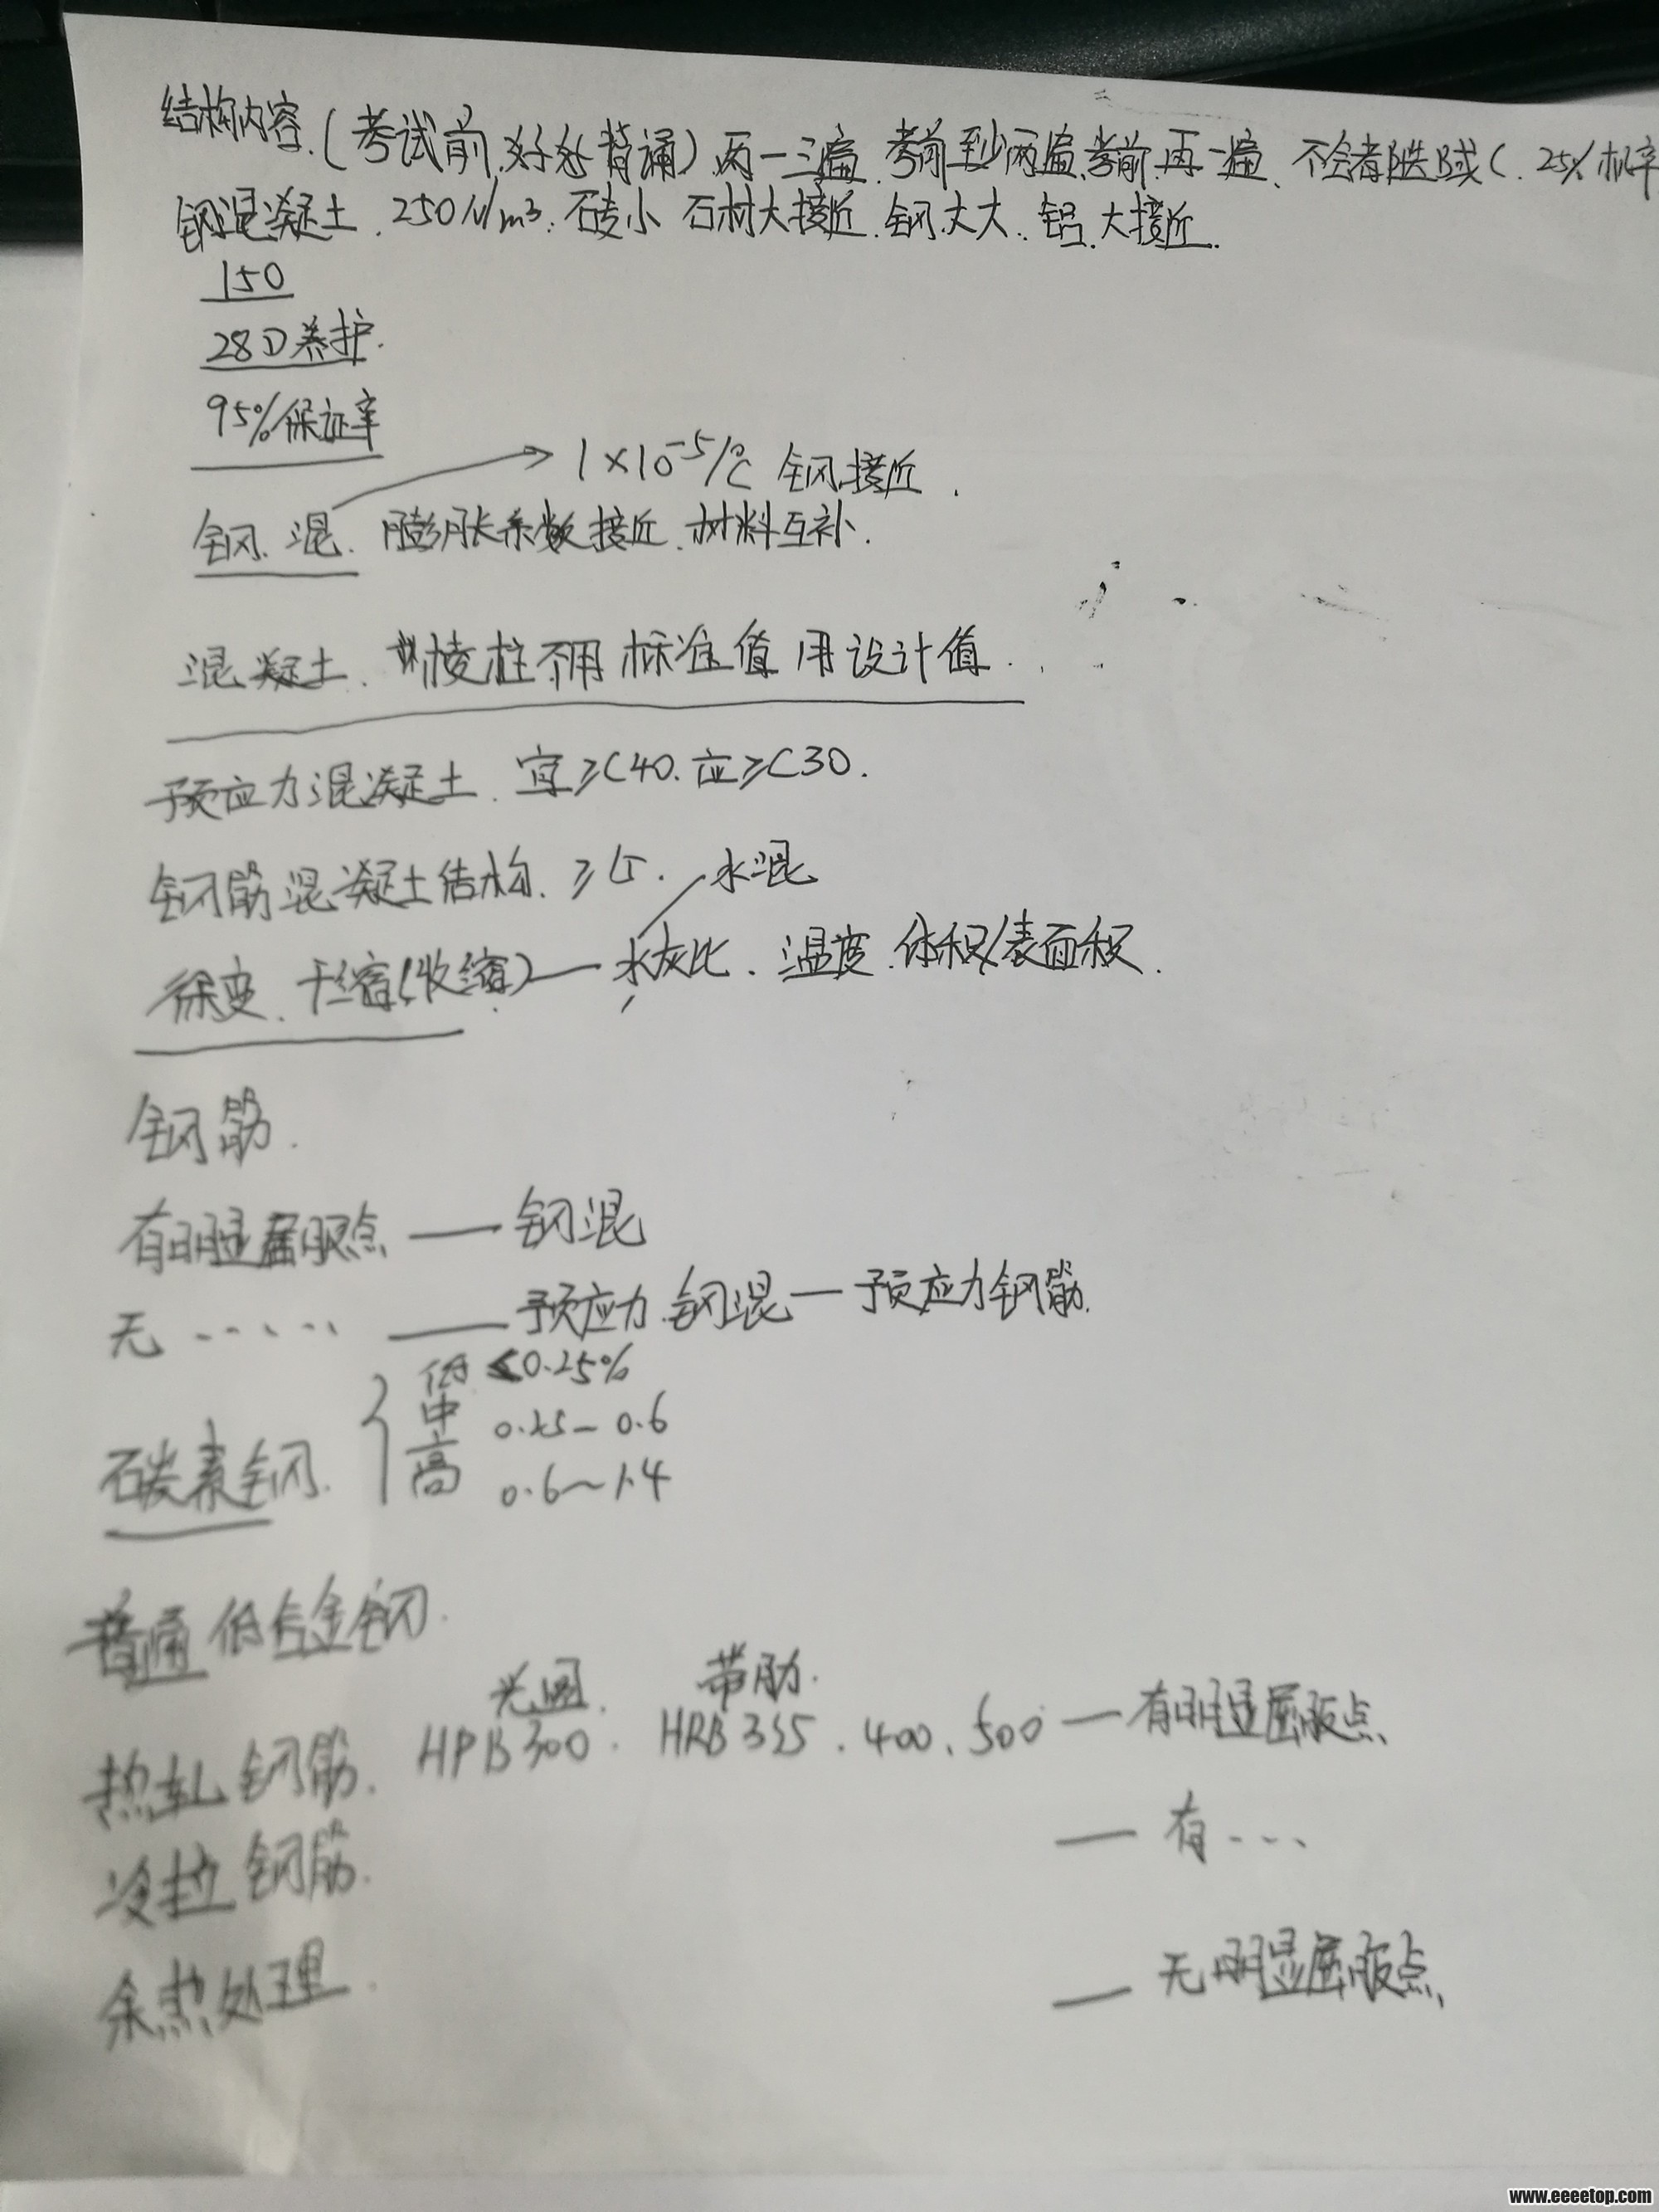 结构内容.(考试前.好好背诵)两一三遍.考前到少两遍.考前.再一遍、不会者B或C.25%机率
钢混凝土.250N/m3.石砖小 石材大接近.钢.大大.铝.大接近.
150
28D养护.
95%保证率
1×10-5/℃ 钢.接近.
钢.混.膨胀系数接近.材料互补.
混凝土.棱柱不用标准值 用设计值.
预应力混凝土.宜≥C40.应≥C30.
钢筋混凝土结构.≥15. 水混
徐变.干缩(收缩)—水灰比.温度.体积/表面积.
钢筋.
有明显屈服点 — 钢混
无······ — 预应力.钢混—预应力钢筋.
低 ≤0.25%
中 0.25-0.6
碳素钢.
高 0.6~1.4
普通低合金钢.
光圆. 带肋.
热轧钢筋. HPB300. HRB335.400.500 — 有明显屈服点
冷拉钢筋. — 有···
余热处理. — 无明显屈服点,
www.eeeetop.com